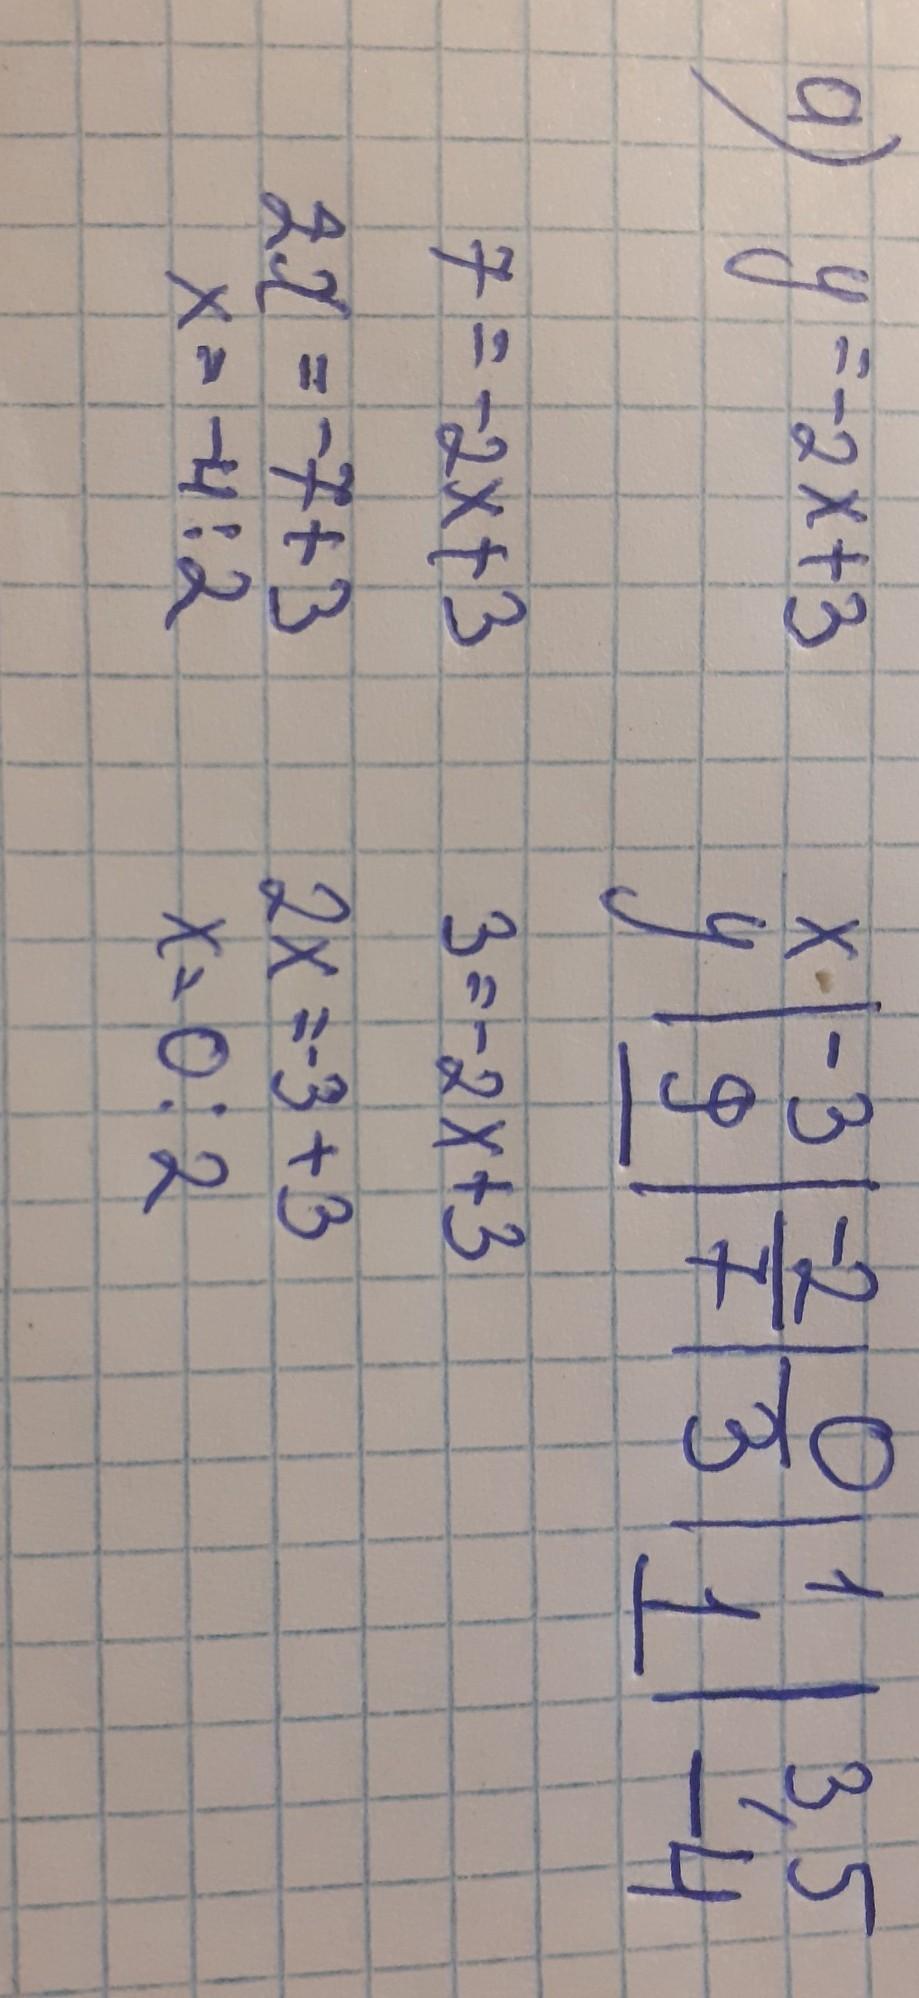 а) y = -2x+3
x | -3 | -2 | 0 | 1 | 3,5
y | 9 | 7 | 3 | 1 | -4
7 = -2x+3 3 = -2x+3
2x = -7+3 2x = -3+3
x = -4:2 x = 0:2